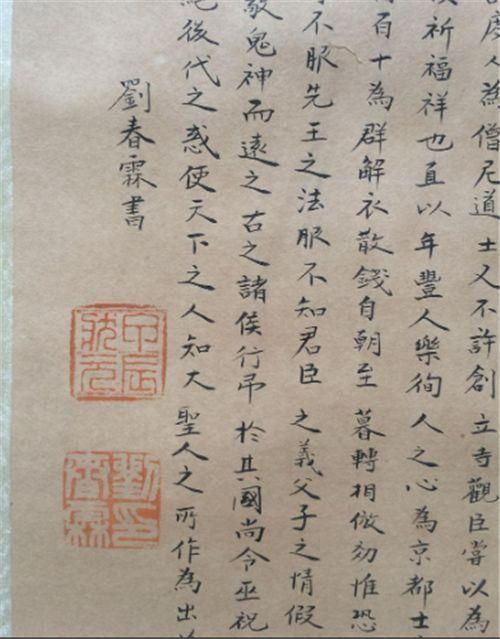 度人為僧尼道士又不許創立寺觀臣嘗以為
祈福祥也直以年豐人樂徇人之心為京都士
百十為群解衣散錢自朝至暮轉相倣効惟恐
不服先王之法服不知君臣之義父子之情假
敬鬼神而遠之古之諸侯行弔於其國尚令巫祝
後代之惑使天下之人知大聖人之所作為出
劉春霖書
甲辰狀元
劉印春霖